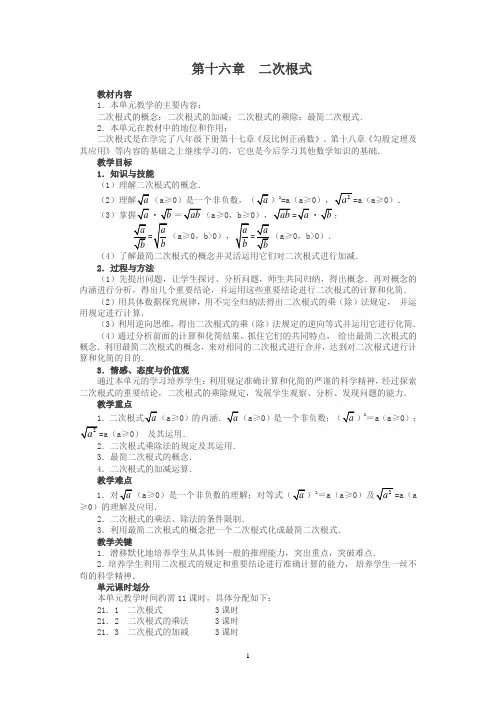 第十六章 二次根式
教材内容
1．本单元教学的主要内容：
二次根式的概念；二次根式的加减；二次根式的乘除；最简二次根式．
2．本单元在教材中的地位和作用：
二次根式是在学完了八年级下册第十七章《反比例正函数》、第十八章《勾股定理及
其应用》等内容的基础之上继续学习的，它也是今后学习其他数学知识的基础．
教学目标
1．知识与技能
（1）理解二次根式的概念．
（2）理解√a（a≥0）是一个非负数，（√a）²=a（a≥0），√a²=a（a≥0）．
（3）掌握√a·√b＝√ab（a≥0，b≥0），√ab=√a·√b；
√a/√b=√(a/b)（a≥0，b>0），√(a/b)=√a/√b（a≥0，b>0）．
（4）了解最简二次根式的概念并灵活运用它们对二次根式进行加减．
2．过程与方法
（1）先提出问题，让学生探讨、分析问题，师生共同归纳，得出概念．再对概念的
内涵进行分析，得出几个重要结论，并运用这些重要结论进行二次根式的计算和化简．
（2）用具体数据探究规律，用不完全归纳法得出二次根式的乘（除）法规定，并运
用规定进行计算．
（3）利用逆向思维，得出二次根式的乘（除）法规定的逆向等式并运用它进行化简．
（4）通过分析前面的计算和化简结果，抓住它们的共同特点，给出最简二次根式的
概念．利用最简二次根式的概念，来对相同的二次根式进行合并，达到对二次根式进行计
算和化简的目的．
3．情感、态度与价值观
通过本单元的学习培养学生：利用规定准确计算和化简的严谨的科学精神，经过探索
二次根式的重要结论，二次根式的乘除规定，发展学生观察、分析、发现问题的能力．
教学重点
1．二次根式√a（a≥0）的内涵．√a（a≥0）是一个非负数；（√a）²＝a（a≥0）；
√a²=a（a≥0） 及其运用．
2．二次根式乘除法的规定及其运用．
3．最简二次根式的概念．
4．二次根式的加减运算．
教学难点
1．对√a（a≥0）是一个非负数的理解；对等式（√a）²＝a（a≥0）及√a²=a（a
≥0）的理解及应用．
2．二次根式的乘法、除法的条件限制．
3．利用最简二次根式的概念把一个二次根式化成最简二次根式．
教学关键
1．潜移默化地培养学生从具体到一般的推理能力，突出重点，突破难点．
2．培养学生利用二次根式的规定和重要结论进行准确计算的能力，培养学生一丝不
苟的科学精神．
单元课时划分
本单元教学时间约需11课时，具体分配如下：
21．1 二次根式 3课时
21．2 二次根式的乘法 3课时
21．3 二次根式的加减 3课时
1